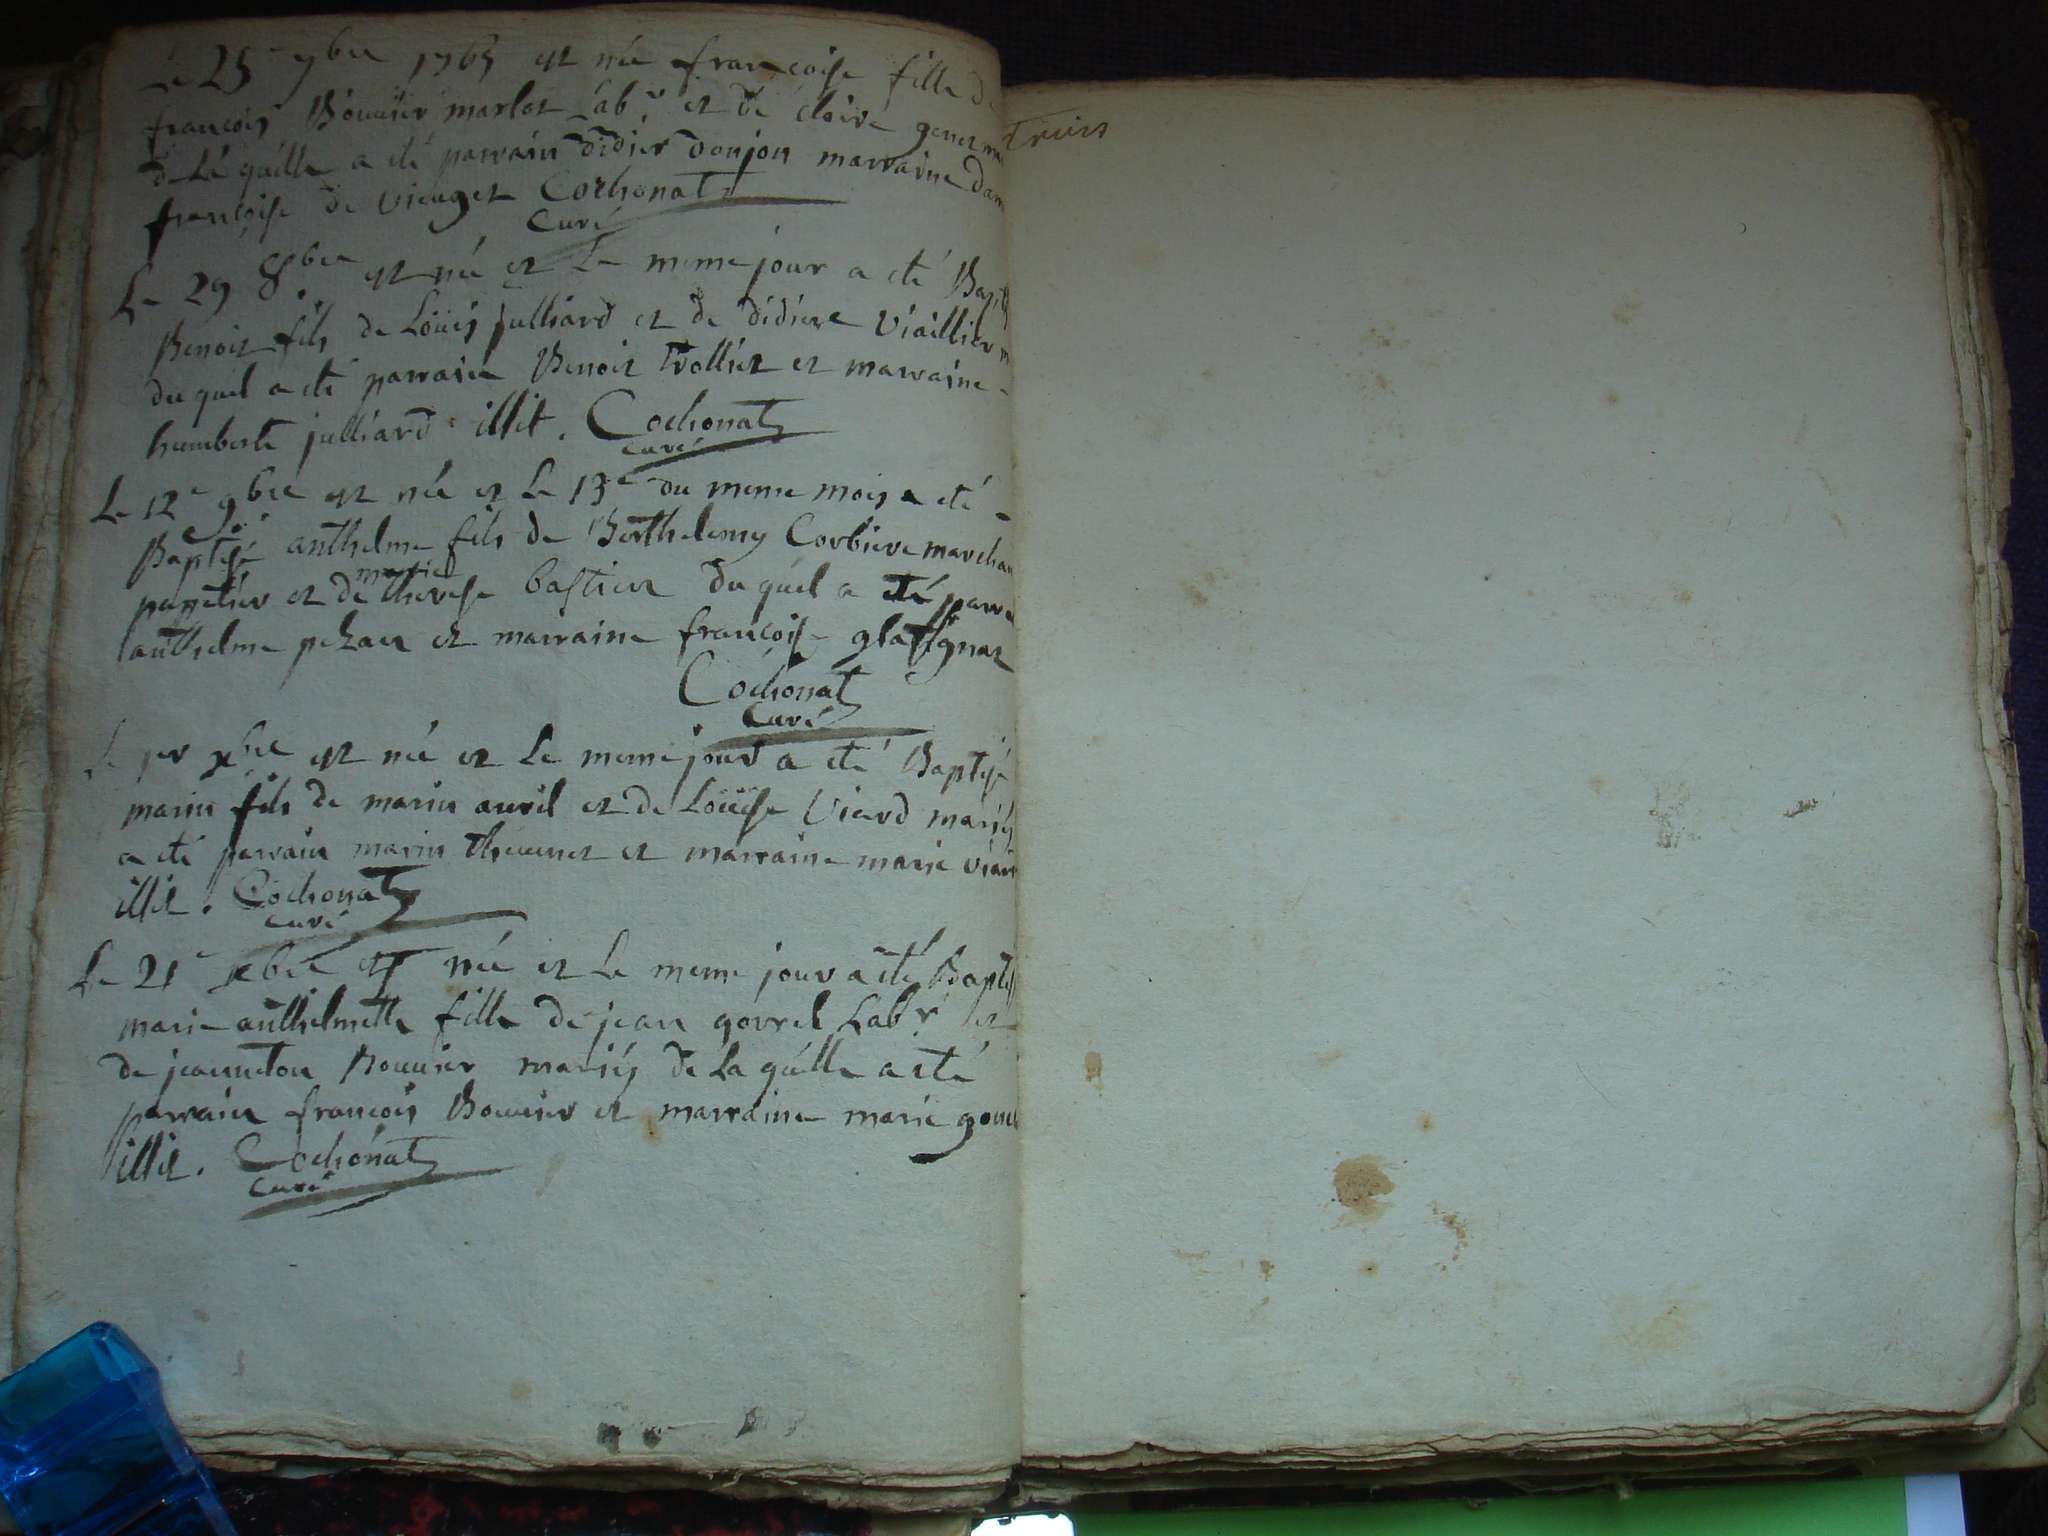 Le 25e 7bre 1765 est née françoise fille de
françois Bouvier marlet Labr. et de claire genet
de La quelle a eté parrain didier donjon marraine dam
françoise de vieuget Cochonat
Curé
Le 29 8bre est né et Le meme jour a eté Bap
Benoit fils de Loüis julliard et de didiere viaillier
du quel a eté parrain Benoit trolliet et marraine
humberte julliard illit. Cochonat
curé
Le 12e 9bre est né et Le 13e du meme mois a eté
Baptisé anthelme fils de Berthelemy Corbiere marchan
mariés
pappetier et de therese bastien du quel a eté parra
anthelme pezan et marraine françoise
Cochonat
Curé
Le per xbre est né et Le meme jour a eté Baptisé
marin fils de marin avril et de Loüise viard mariés
a eté parrain marin thevenet et marraine marie viar
illit. Cochonat
curé
Le 21e xbre est née et Le meme jour a eté Baptis
marie anthelmette fille de jean gorrel Labr et
de jeanneton Bouvier mariés de La quelle a eté
parrain françois Bouvier et marraine marie
illit. Cochonat
Curé